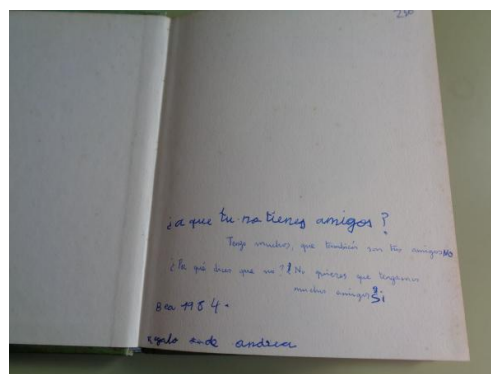 230
¿a que tu no tienes amigos?
Tengo muchos, que también son tus amigos No
¿Por qué dices que no? ¿No quieres que tengamos
muchos amigos? Si
Bea 1984.
Regalo de andrea